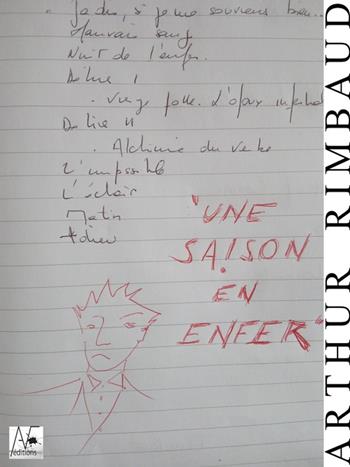 " Jadis, si je me souviens bien...
Mauvais sang
Nuit de l'enfer.
Délire I
. Vierge folle. L'époux infernal
Délire II
. Alchimie du verbe
L'impossible
L'éclair
Matin
Adieu
"UNE
SAISON
EN
ENFER"
ARTHUR RIMBAUD
éditions